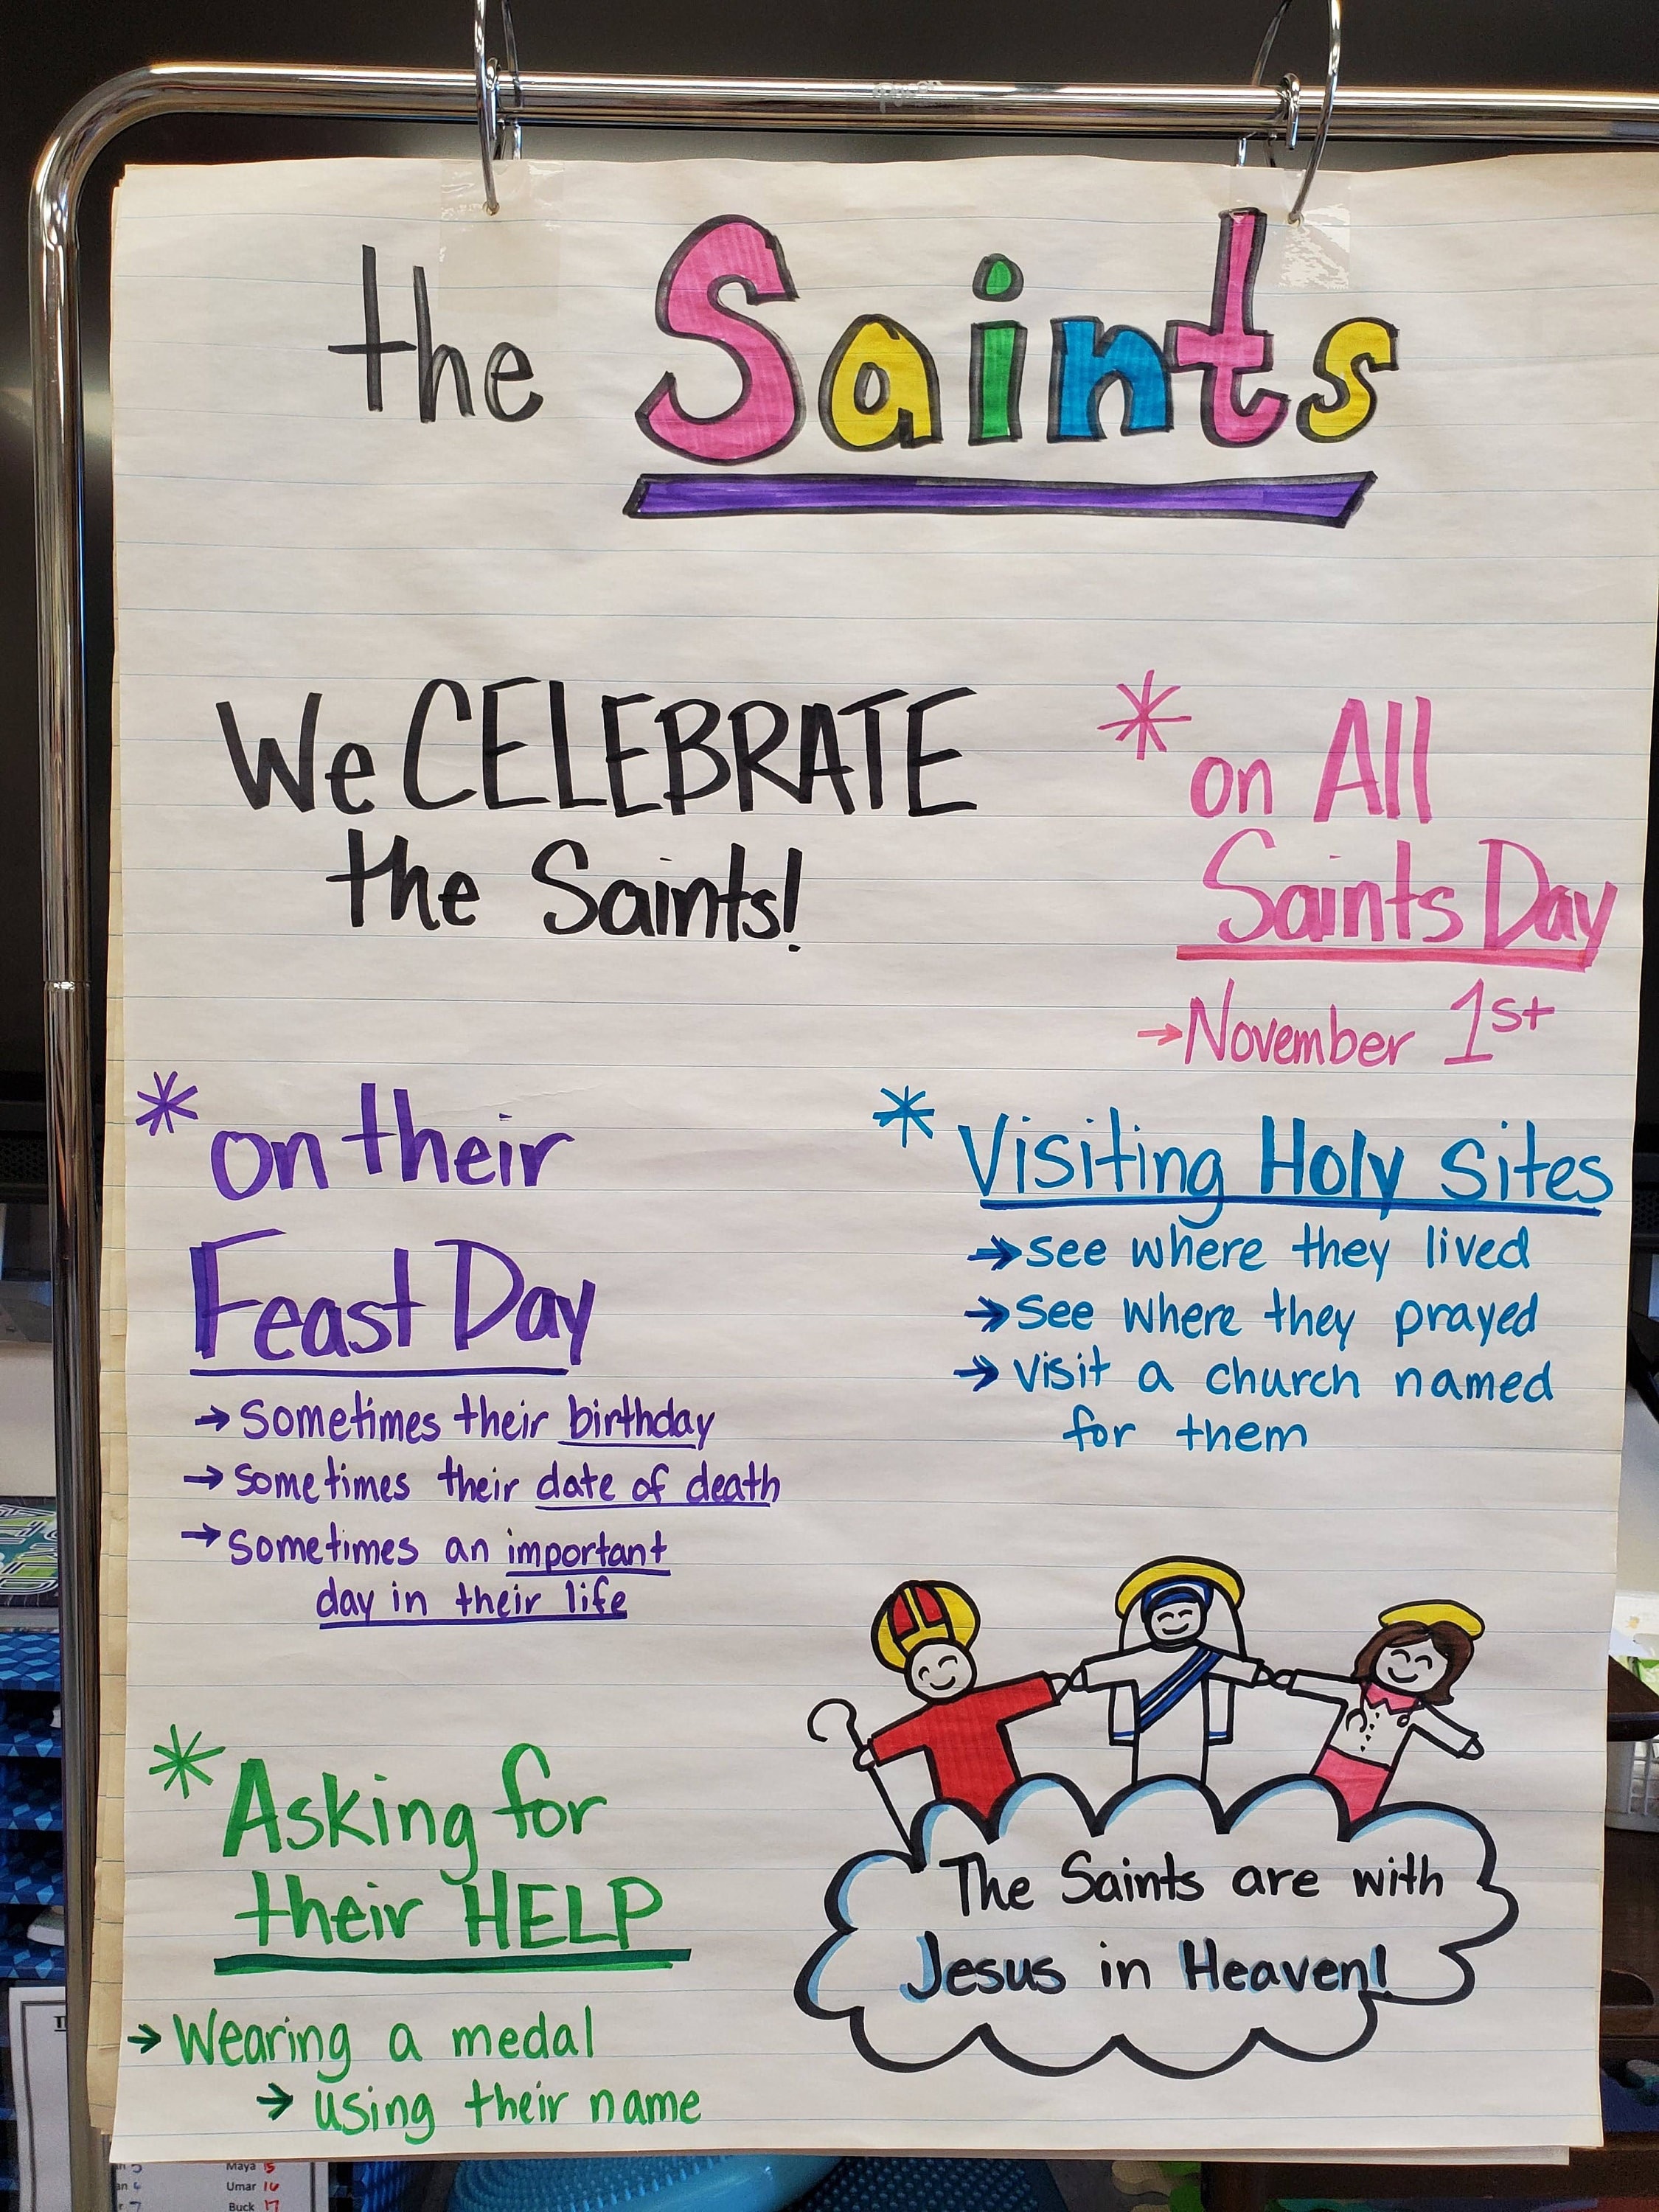 the Saints
We CELEBRATE
the Saints!
* on All
Saints Day
→ November 1st
* on their
Feast Day
→ sometimes their birthday
→ sometimes their date of death
→ sometimes an important
day in their life
* Visiting Holy Sites
→ see where they lived
→ see where they prayed
→ visit a church named
for them
* Asking for
their HELP
→ Wearing a medal
→ using their name
The Saints are with
Jesus in Heaven!
Maya 15
Umar 16
Buck 17